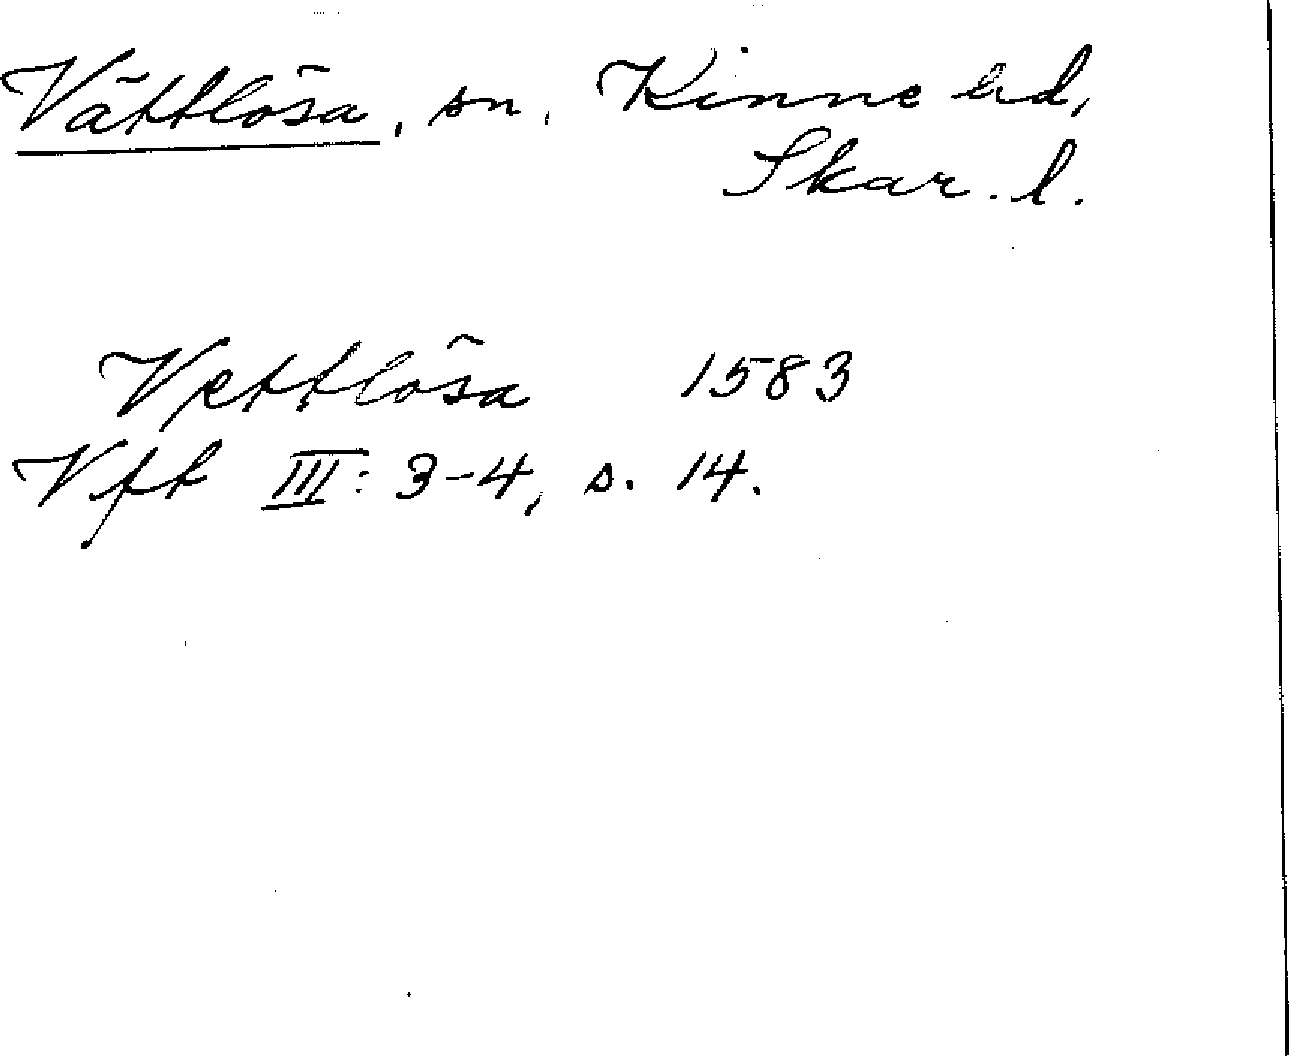 Vättlösa, sn, Kinne hd,
Skar. l.
Vettlösa 1583
Vft III: 3-4, s. 14.